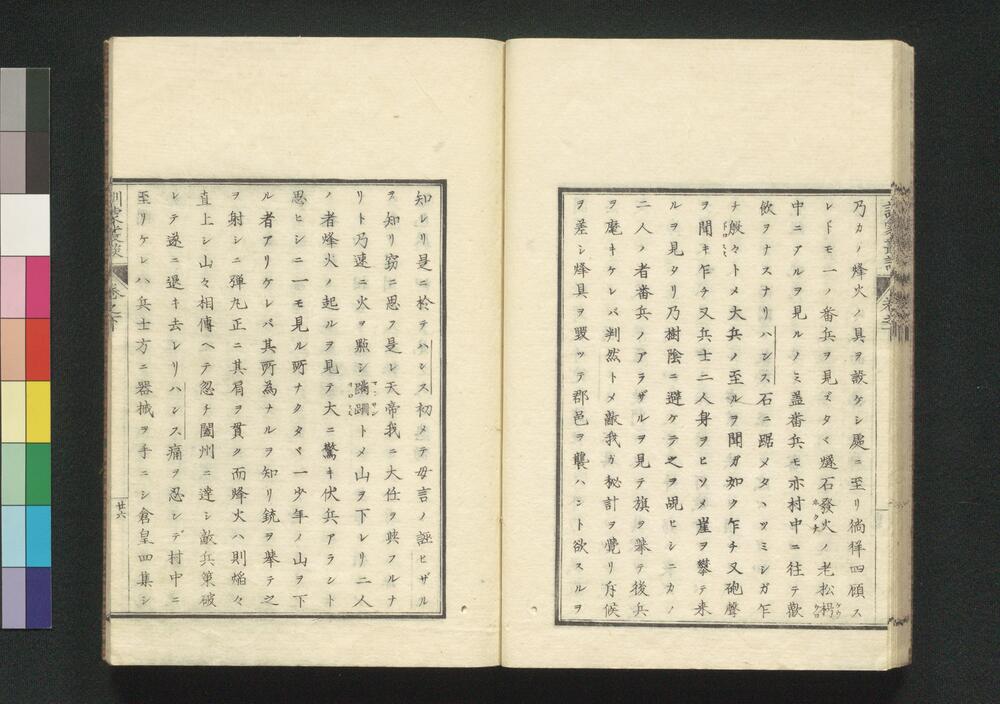 乃カノ烽火ノ具ヲ設ケシ處ニ至リ徜徉四顧ス
レドモ一ノ畨兵ヲ見ズタヾ燧石發火ノ老松樗
中ニアルヲ見ルノミ盖畨兵モ亦村中ニ往テ歡
飲ヲナスナリハンス石ニ踞メタハツミシガ乍
チ殷々トメ大兵ノ至ルヲ聞ガ如ク乍チ又砲聲
ヲ聞キ乍チ又兵士二人身ヲヒソメ崖ヲ攀テ来
ルヲ見タリ乃樹陰ニ避ケテ之ヲ覘ヒシニカノ
二人ノ者畨兵ノアラザルヲ見テ旗ヲ挙テ後兵
ヲ麾キケレバ判然トメ敵我ガ秘計ヲ覺リ斥候
ヲ差シ烽具ヲ毀ッテ郡邑ヲ襲ハント欲スルヲ
知レリ是ニ於テハンス初メテ母言ノ誣ヒザル
ヲ知リ窃ニ思フ是レ天帝我ニ大任ヲ與フルナ
リト乃速ニ火ヲ㸃シ蹣跚トメ山ヲ下レリ二人
ノ者烽火ノ起ルヲ見テ大ニ驚キ伏兵アラント
思ヒシニ一モ見ル所ナクタヾ一少年ノ山ヲ下
ル者アリケレバ其所為ナルヲ知リ銃ヲ挙テ之
ヲ射シニ弾丸正ニ其肩ヲ貫ク而烽火ハ則焔々
直上シ山々相傳ヘテ忽チ闔州ニ達シ敵兵策破
レテ遂ニ退キ去レリハンス痛ヲ忍シデ村中ニ
至リケレハ兵士方ニ器械ヲ手ニシ倉皇四集シ
訓蒙叢談
卷之下
廿六